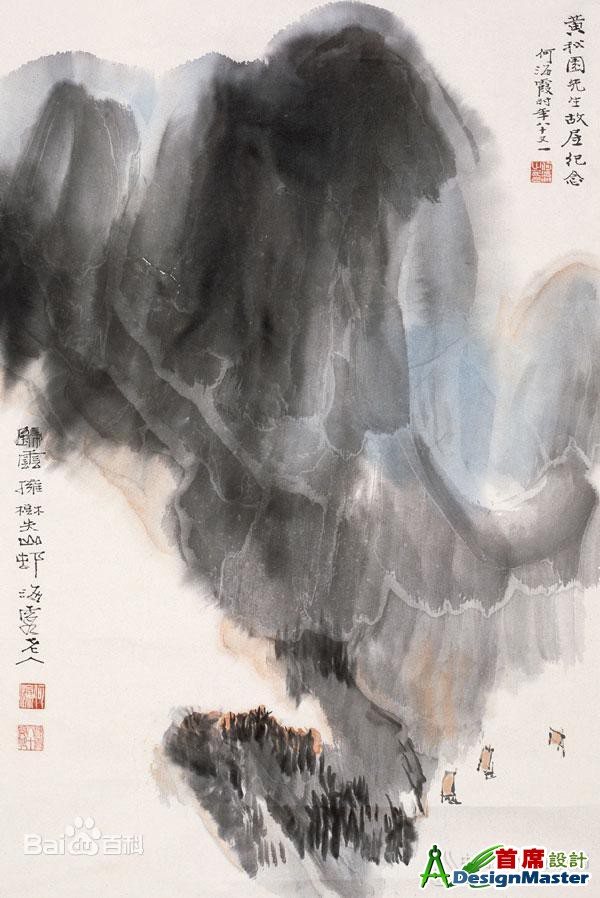 黄秋園先生故居纪念
何海霞时年八十又一
歸雲擁樹失山邨
海霞老人
Bai百科
首席設計
DesignMaster